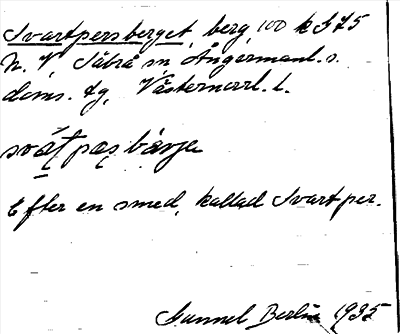 Svartpersberget, berg, 100 k S 75
N. V, Säbrå sn Ångermanl. s.
doms. tg, Västernorrl. l.
svaʈpæʂbärje
Efter en smed, kallad Svartper.
Gunnel Berlin 1935